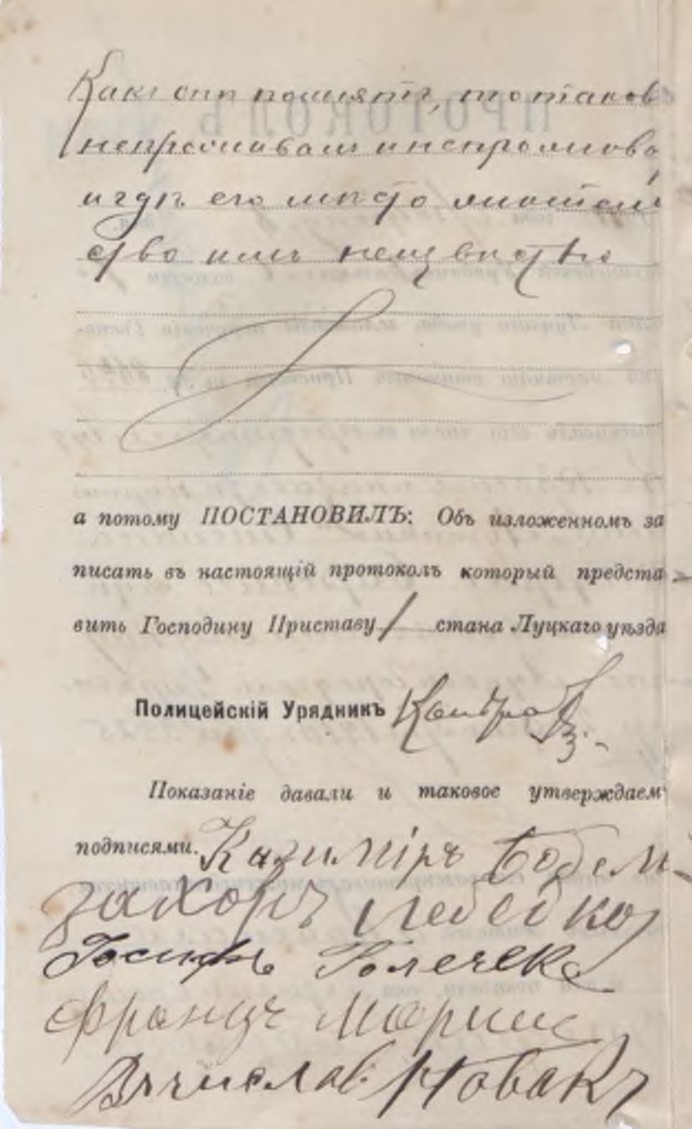 Какъ они помнятъ, то таков
непроживалъ и непрожива
и гдѣ его мѣсто жител
ство имъ неизвѣстно
а потому ПОСТАНОВИЛЪ: Объ изложенномъ за
писать въ настоящій протоколъ который предста
вить Господину Приставу 1 стана Луцкаго уѣзда
Полицейскій Урядникъ
Показаніе давали и таковое утверждаем
подписями. Казимiръ
Захоръ Лебедко
Іосифъ
Францъ Марек
Вячиславъ Новакъ
ПРОТОКОЛЪ